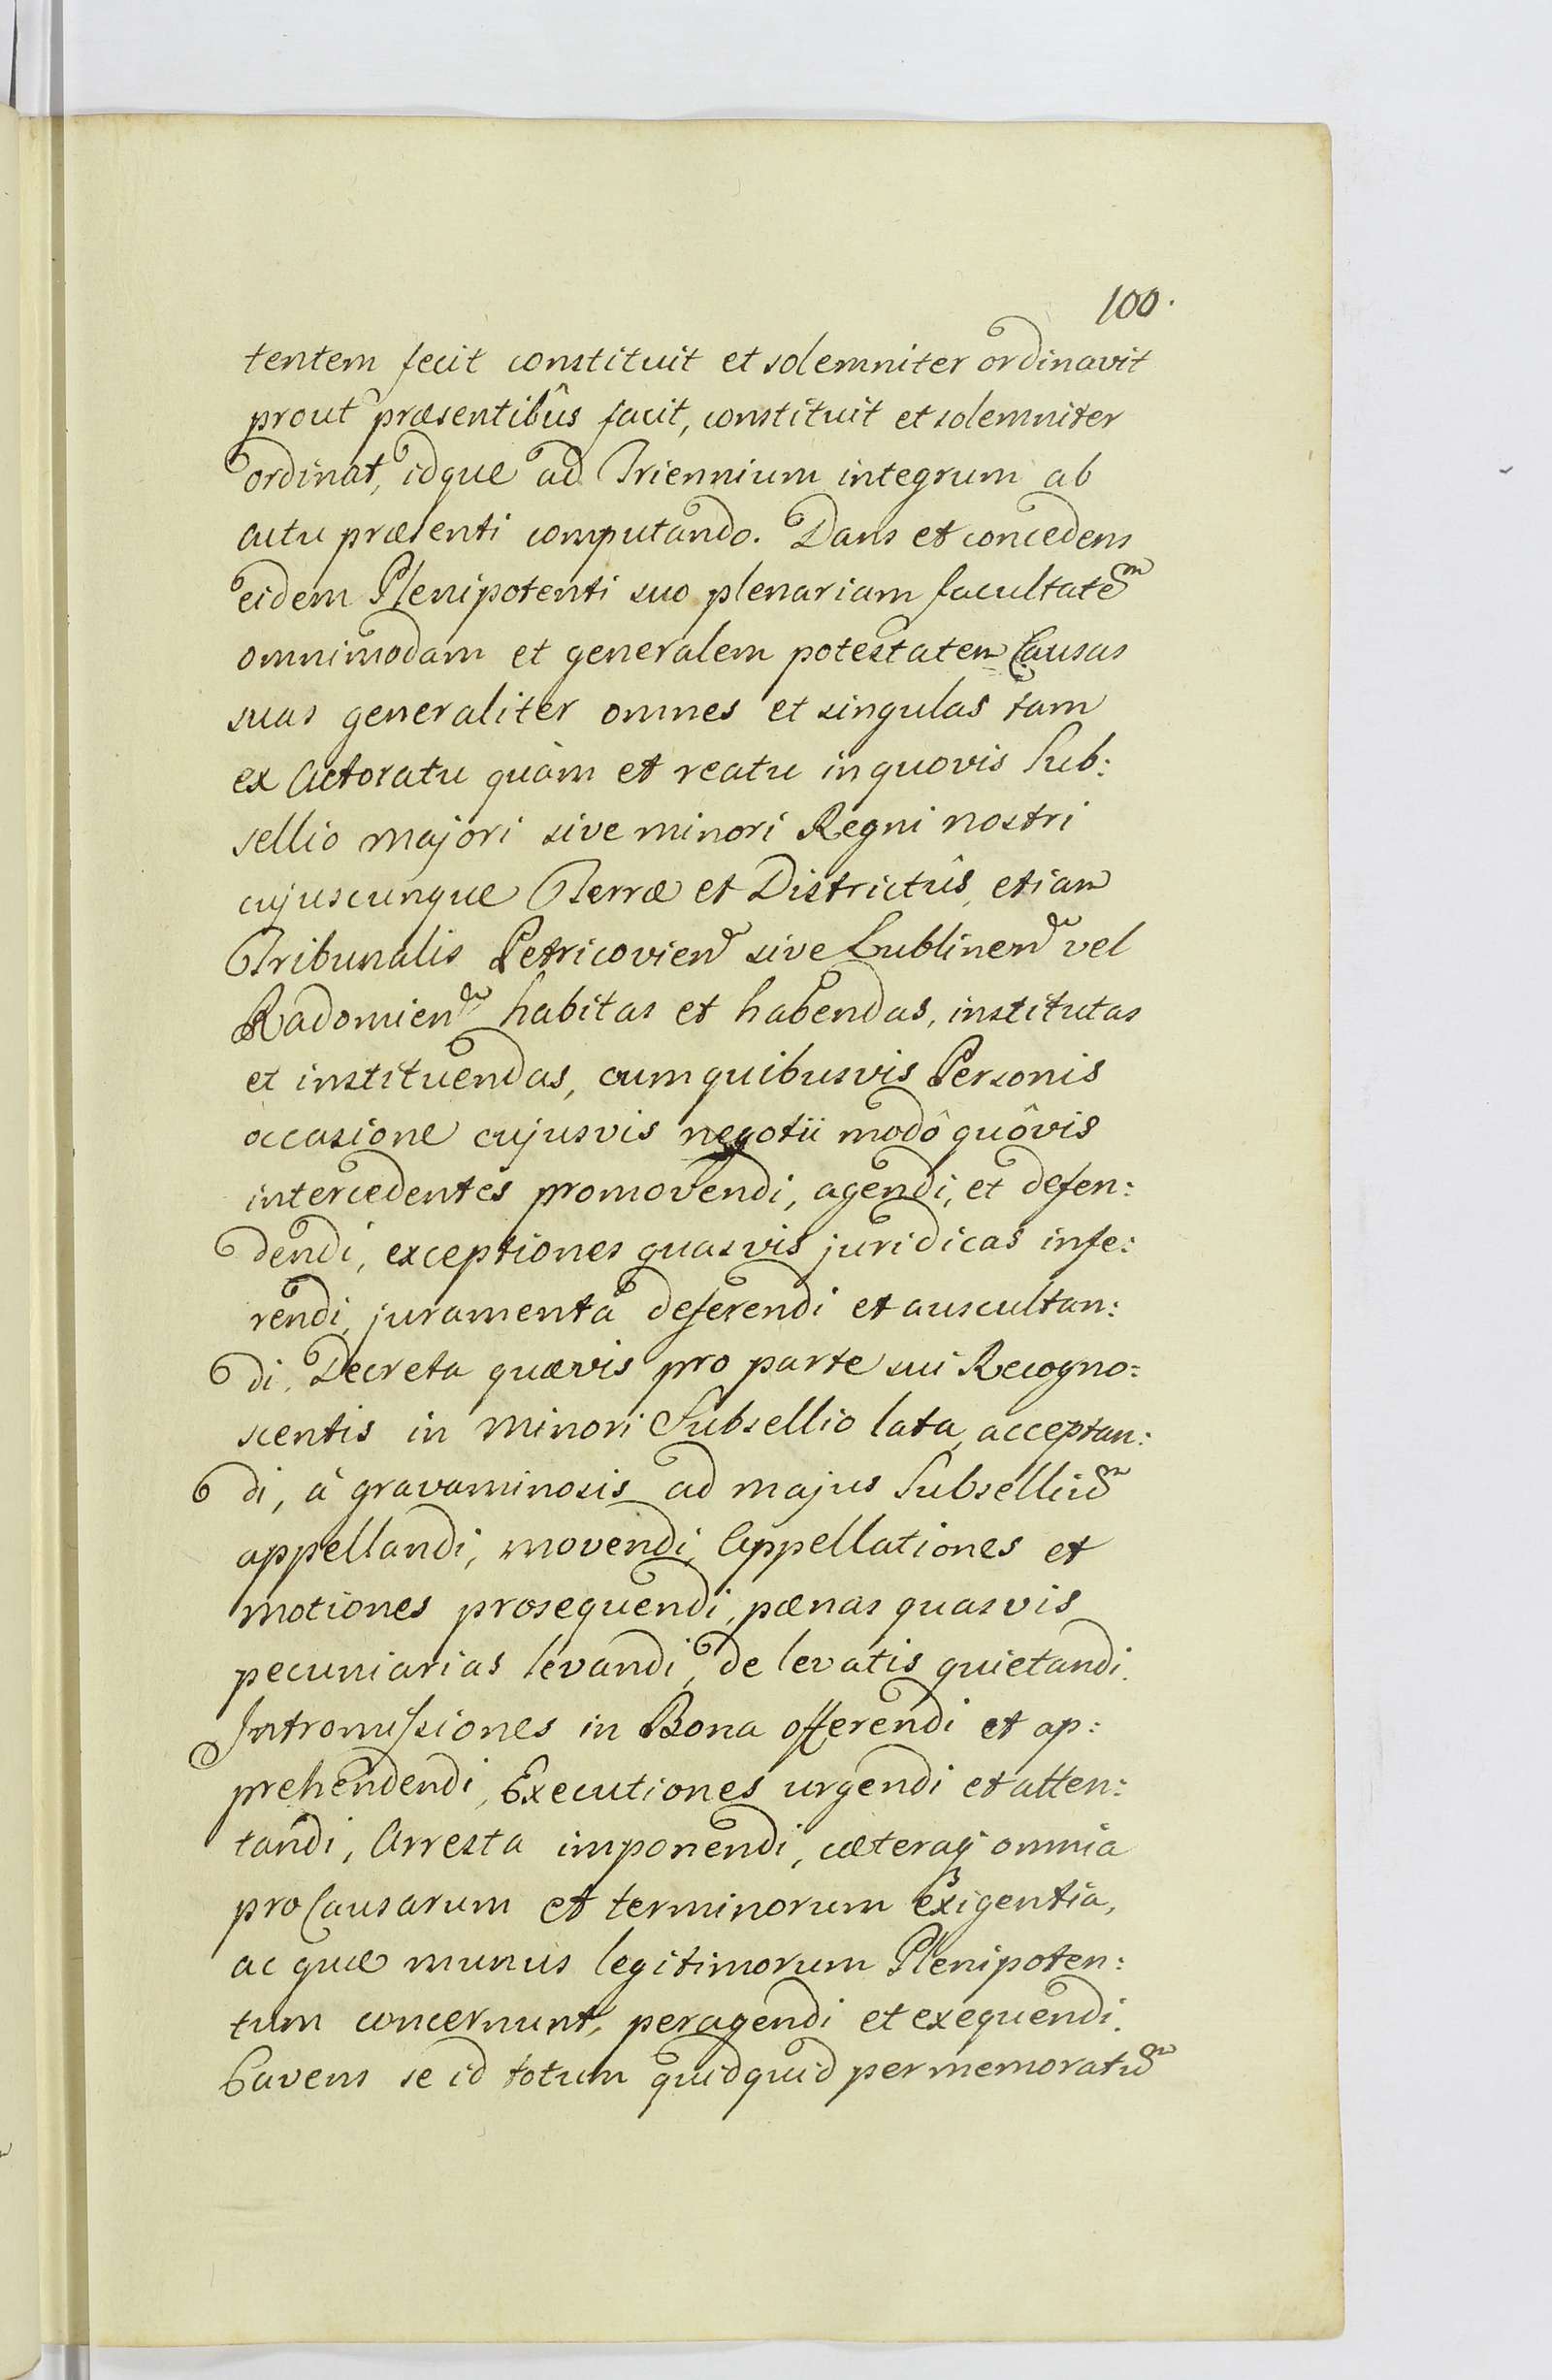 100.
tentem fecit constituit et solemniter ordinavit
prout præsentibûs facit, constituit et solemniter
ordinat, idque ad Triennium integrum ab
actu præsenti computando. Dans et concedens
eidem Plenipotenti suo plenariam facultatẽm
omnimodam et generalem potestatem Causas
suas generaliter omnes et singulas tam
ex Actoratu quàm et reatu in quovis Sub:
sellio majori sive minori Regni nostri
cujuscunque Terræ et Districtûs, etiam
Tribunalis Petricovien sive Lublinen vel
Radomien habitas et habendas, institutas
et instituendas, cum quibusvis Personis
occasione cujusvis negotii modô quôvis
intercedentes promovendi, agendi, et defen:
dendi, exceptiones quasvis juridicas infe:
rendi, juramenta deferendi et auscultan:
di. Decreta quævis pro parte sui Recogno:
scentis in minori Subsellio lata, acceptan:
di, à gravaminosis ad majus Subselliũm
appellandi, movendi, Appellationes et
motiones prosequendi, pænas quasvis
pecuniarias levandi, de levatis quietandi.
Intromissiones in Bona offerendi et ap:
prehendendi, Executiones urgendi et atten:
tandi, Arresta imponendi, cæteraq omnia
pro Causarum et terminorum exigentia,
ac quæ munus legitimorum Plenipoten:
tum concernunt, peragendi et exequendi.
Cavens se id totum quidquid per memoratũm